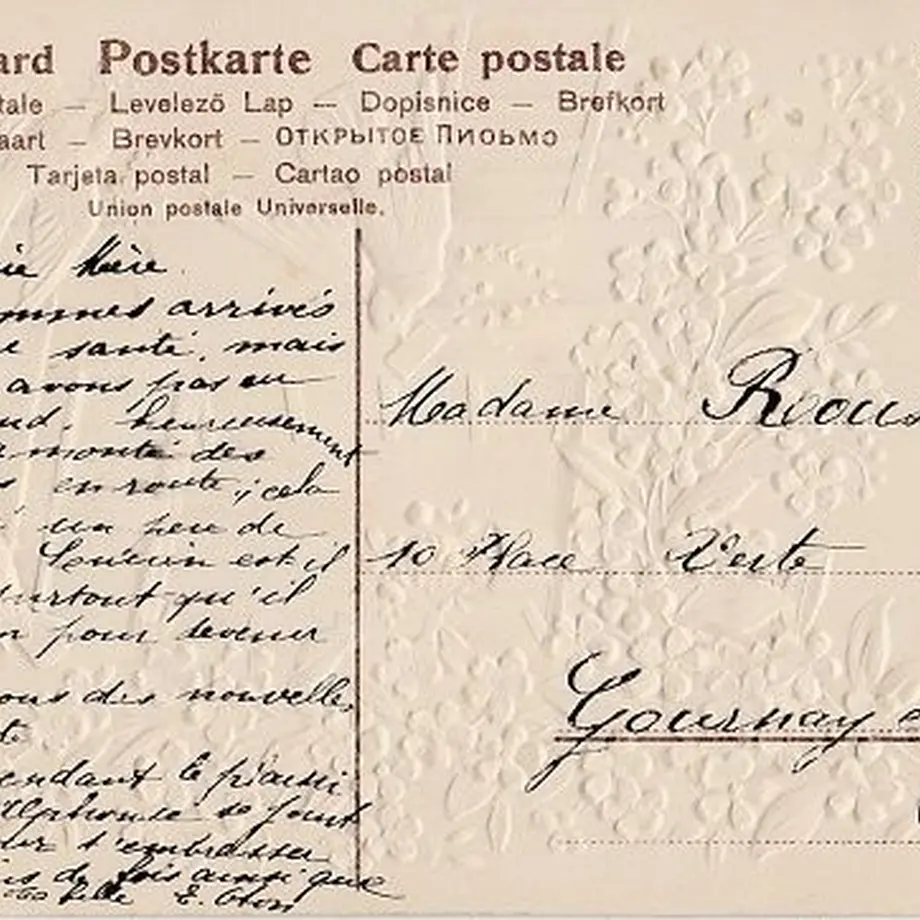 ard Postkarte Carte postale
tale — Levelező Lap — Dopisnice — Brefkort
aart — Brevkort — ОТКРЫТОЕ ПИСЬМО
Tarjeta postal — Cartao postal
Union postale Universelle.
ie Mère.
mmes arrivés
e santé, mais
avons pas eu
nd. heureusement
monté des
s en route ; cela
un peu de
est-il
surtout qu'il
n pour devenir
ous des nouvelles,
te
endant le plaisir
Alphonse se joint
t'embrasser
is de fois ainsi que
E.
Madame Roous
10 Place Verte
Gournay e